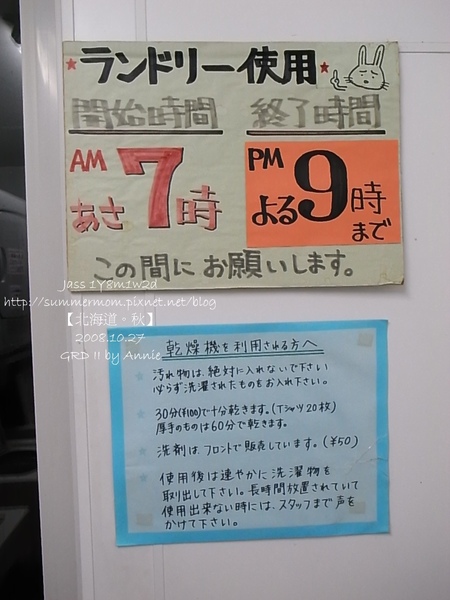 ランドリー使用
開始時間 終了時間
AM
あさ7時
PM
よる9時まで
この間にお願いします。
Jass 1Y8m1w2d
http://summermom.pixnet.net/blog
【北海道。秋】
2008.10.27
GRD II by Annie
乾燥機を利用される方へ
汚れ物は、絶対に入れないで下さい
必らず洗濯されたものをお入れ下さい。
30分(¥100)で十分乾きます。(Tシャツ20枚)
厚手のものは60分で乾きます。
洗剤は、フロントで販売しています。(¥50)
使用後は速やかに洗濯物を
取り出して下さい。長時間放置されていて
使用出来ない時には、スタッフまで声を
かけて下さい。